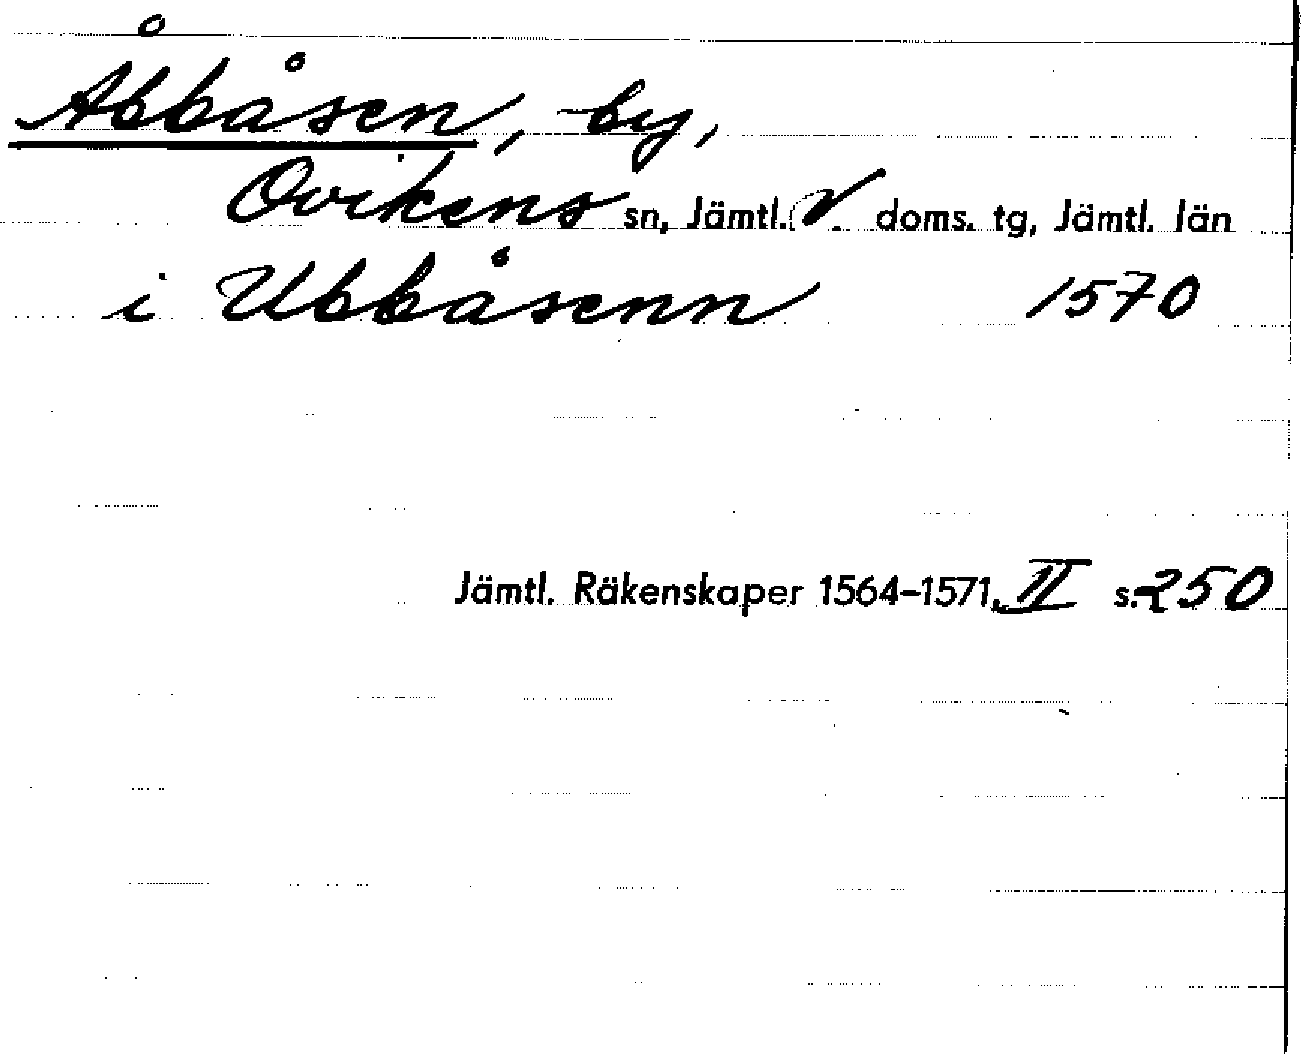 Åbbåsen, by,
Ovikens sn, Jämtl. V. doms. tg, Jämtl. län
i Ubbåsenn 1570
Jämtl. Räkenskaper 1564-1571, II s. 250